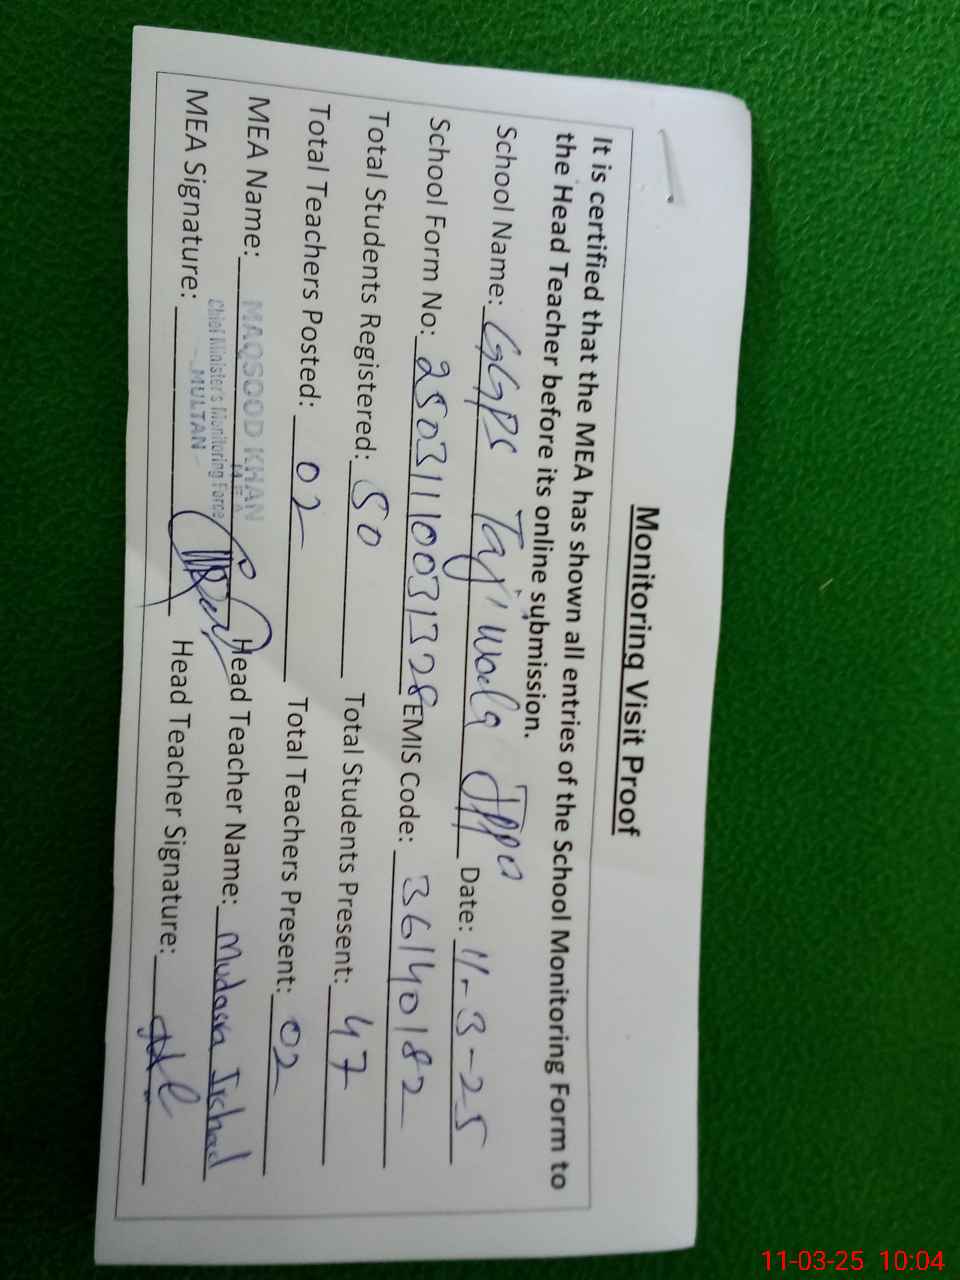 Monitoring Visit Proof
It is certified that the MEA has shown all entries of the School Monitoring Form to
the Head Teacher before its online submission.
School Name: GGPS Taj Wala Date: 11-3-25
School Form No: 25031110031328 EMIS Code: 36140182
Total Students Registered: 50 Total Students Present: 47
Total Teachers Posted: 02 Total Teachers Present: 02
MEA Name: MAQSOOD KHAN Head Teacher Name: Mudasra Irshad
M.E.A
Chief Minister's Monitoring Force
MULTAN
MEA Signature: Head Teacher Signature:
11-03-25 10:04